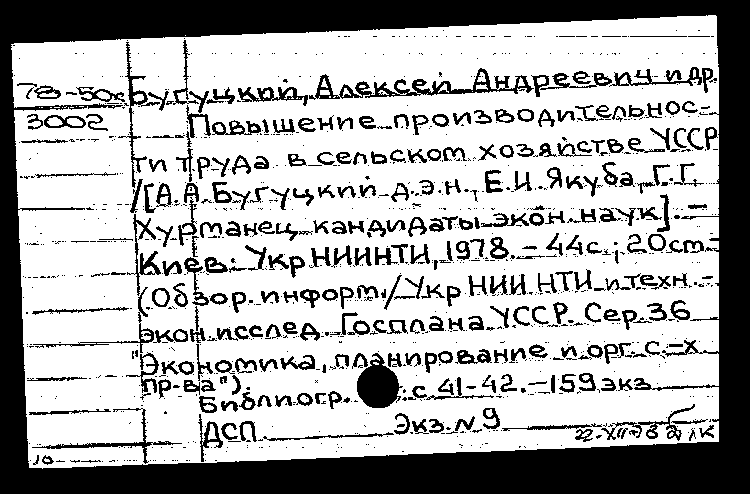 78-50к Бугуцкий, Алексей Андреевич и др.
3002 Повышение производительнос-
ти труда в сельском хозяйстве УССР
/[А.А.Бугуцкий д.э.н., Е.И.Якуба, Г.Г.
Хурманец кандидаты экон. наук]. –
Киев: УкрНИИНТИ, 1978. – 44с.; 20см –
(Обзор. информ./УкрНИИНТИ и техн.-
экон. исслед. Госплана УССР. Сер.36
"Экономика, планирование и орг. с.-х
пр-ва").
Библиогр. с.41-42. – 159экз.
ДСП Экз.№9
22-XII-78
10